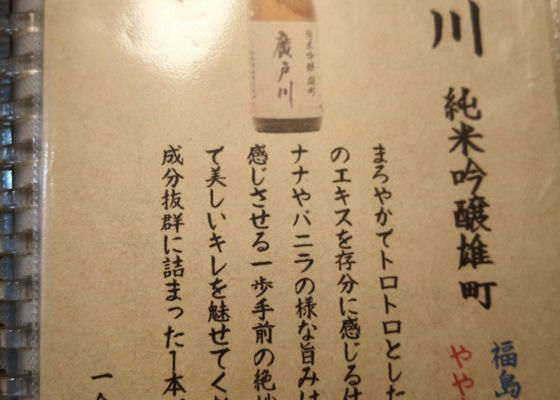 川 純米吟醸雄町
福島
やや
まろやかでトロトロとした
のエキスを存分に感じるは
ナナやバニラの様な旨みは
感じさせる一歩手前の絶妙
で美しいキレを魅せてくだ
成分抜群に詰まった1本
一合
純米吟醸 雄町
廣戸川